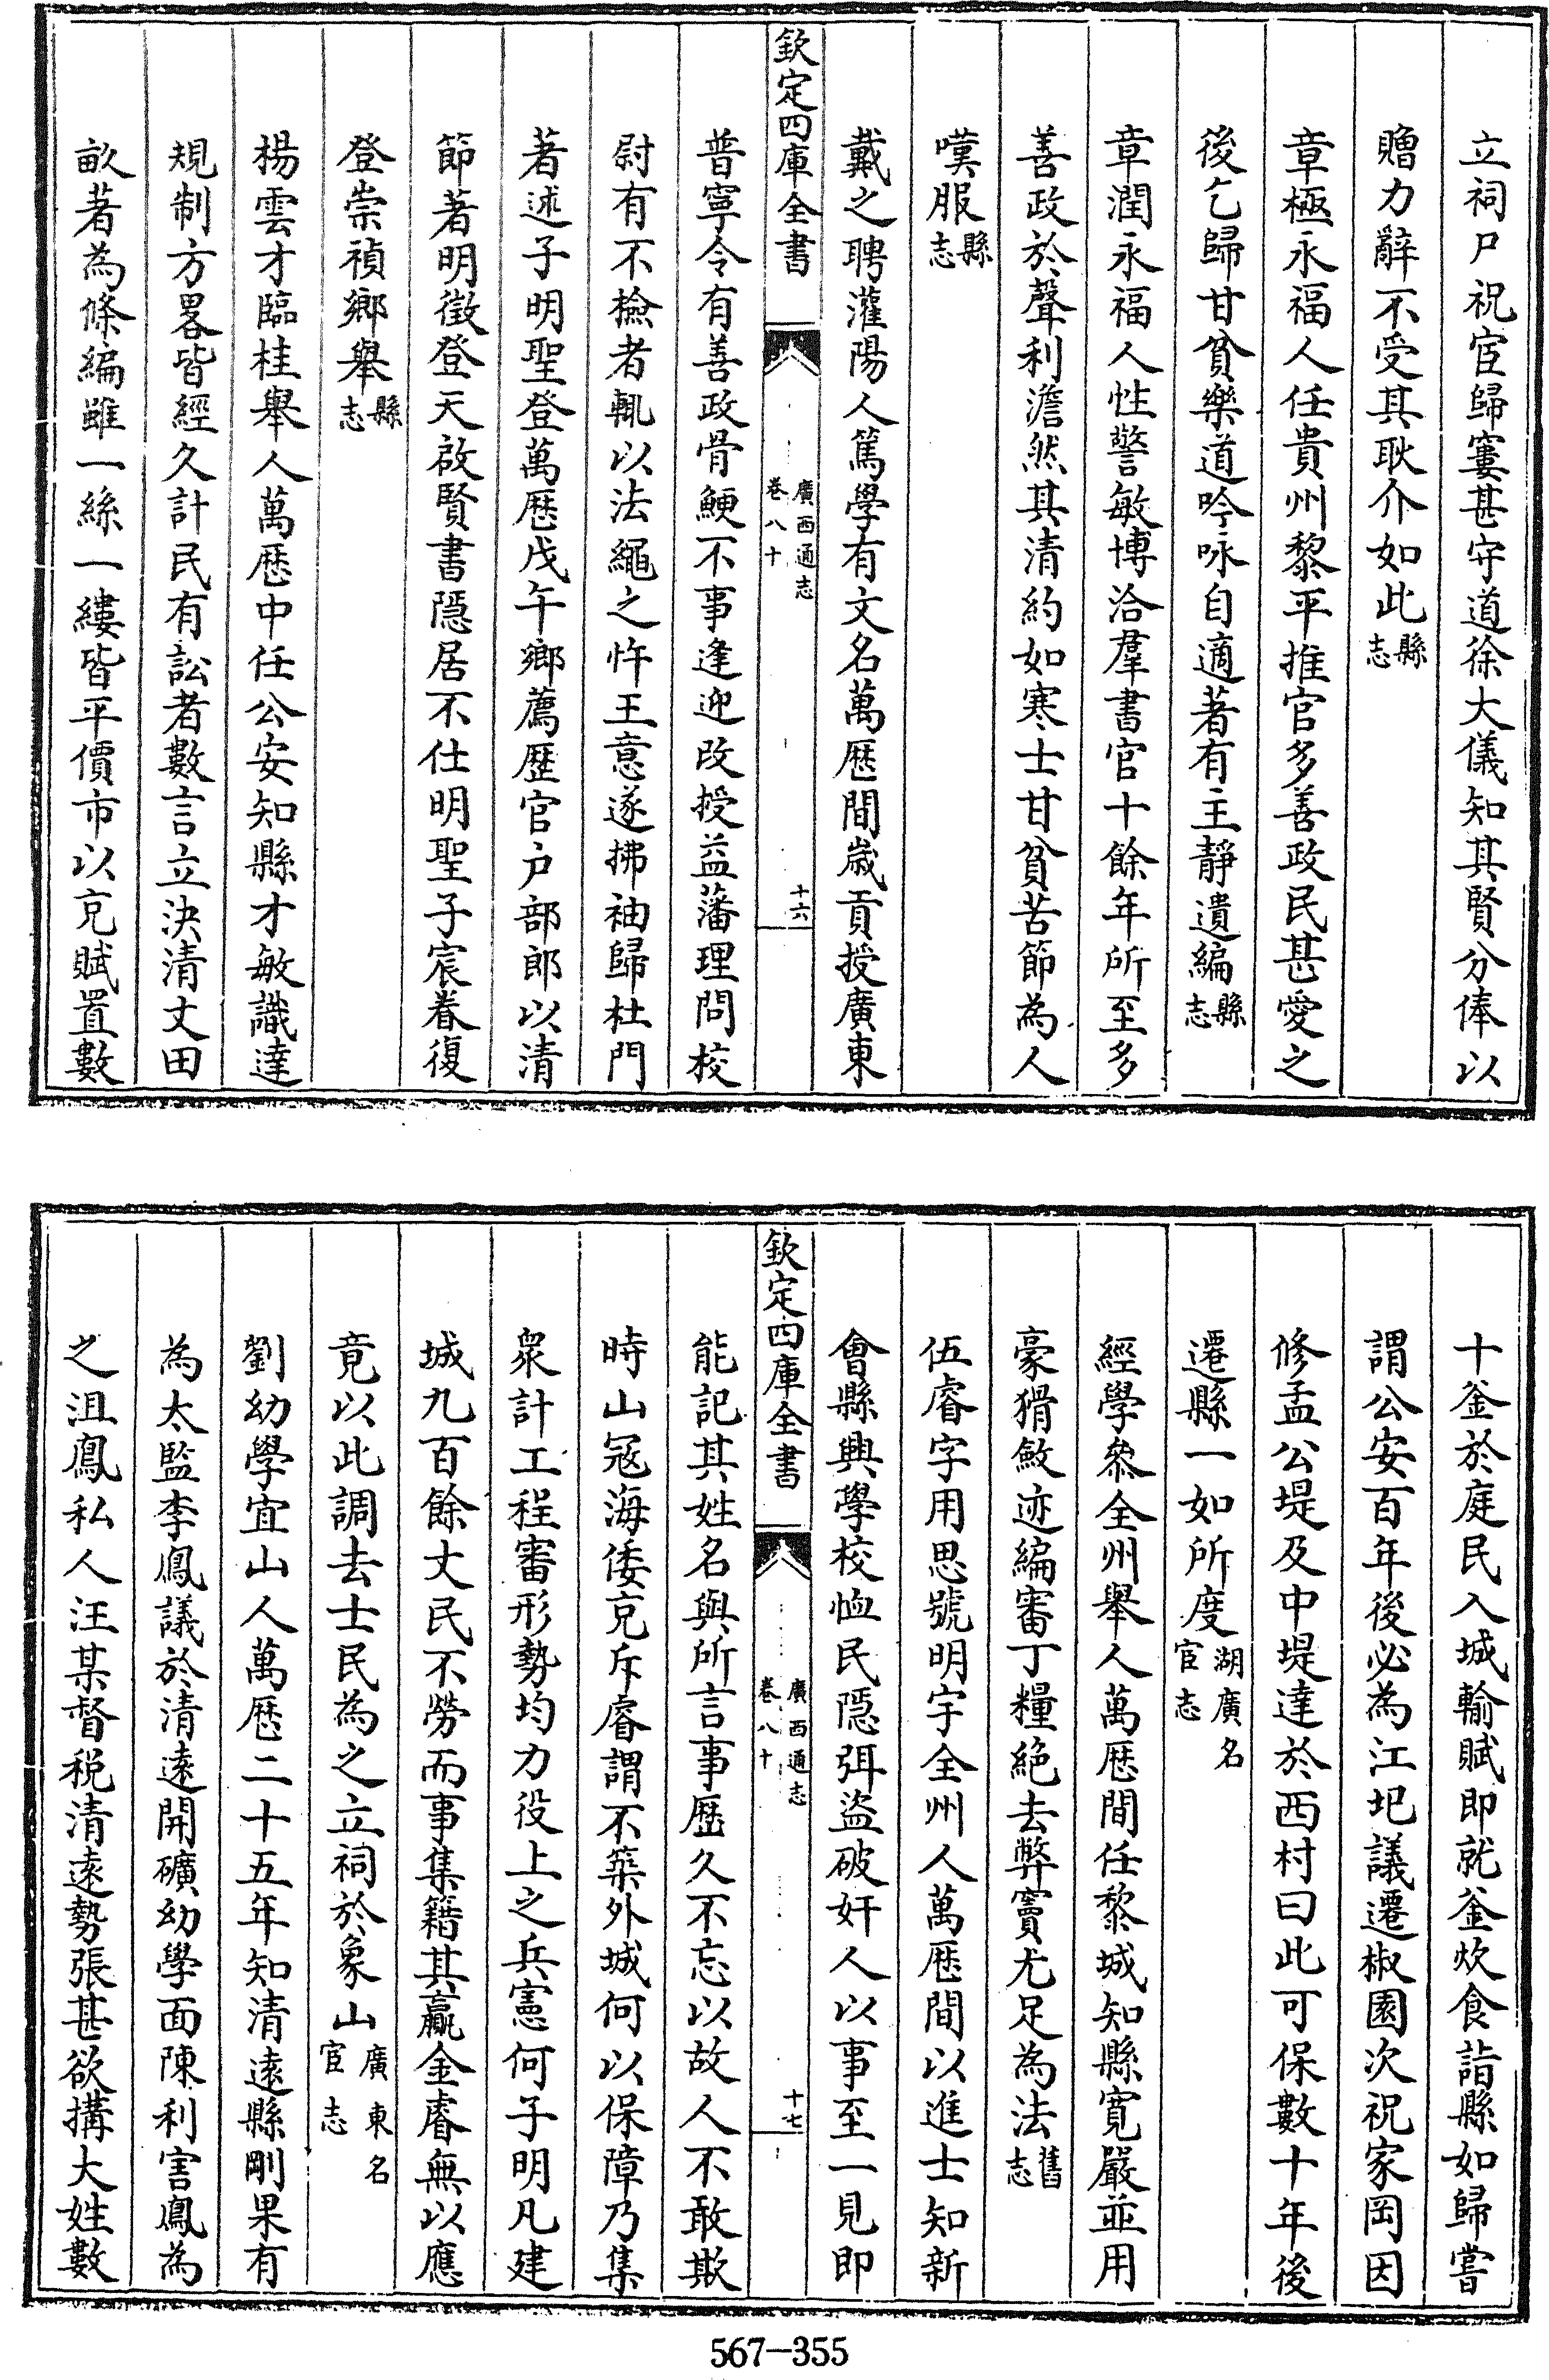 立祠尸祝宦歸窶甚守道徐大儀知其賢分俸以
贈力辭不受其耿介如此縣志
章極永福人任貴州黎平推官多善政民甚愛之
後乞歸甘貧樂道吟咏自適著有主靜遺編縣志
章潤永福人性警敏博洽羣書官十餘年所至多
善政於聲利澹然其清約如寒士甘貧苦節為人
嘆服縣志
戴之聘灌陽人篤學有文名萬厯間歲貢授廣東
欽定四庫全書 廣西通志 卷八十 十六
普寧令有善政骨鯁不事逢迎改授益藩理問校
尉有不檢者輒以法繩之忤王意遂拂袖歸杜門
著述子明聖登萬厯戊午鄉薦歴官户部郎以清
節著明徵登天啟賢書隱居不仕明聖子宸眷復
登崇禎鄉舉縣志
楊雲才臨桂舉人萬厯中任公安知縣才敏識達
規制方畧皆經久計民有訟者數言立決清丈田
畝著為條編雖一絲一縷皆平價市以充賦置數
十釡於庭民入城輸賦即就釡炊食詣縣如歸嘗
謂公安百年後必為江圯議遷椒園次祝家岡因
修孟公堤及中堤達於西村曰此可保數十年後
遷縣一如所度湖廣名宦志
經學叅全州舉人萬厯間任黎城知縣寛嚴並用
豪猾斂迹編審丁糧絶去弊竇尤足為法舊志
伍睿字用思號明宇全州人萬厯間以進士知新
會縣興學校恤民隠弭盜破奸人以事至一見即
欽定四庫全書 廣西通志 卷八十 十七
能記其姓名與所言事歴久不忘以故人不敢欺
時山寇海倭充斥睿謂不築外城何以保障乃集
衆計工程審形勢均力役上之兵憲何子明凡建
城九百餘丈民不勞而事集籍其贏金睿無以應
竟以此調去士民為之立祠於象山廣東名宦志
劉幼學宜山人萬厯二十五年知清遠縣剛果有
為太監李鳳議於清遠開礦幼學面陳利害鳳為
之沮鳳私人汪某督税清遠勢張甚欲搆大姓數
567-355